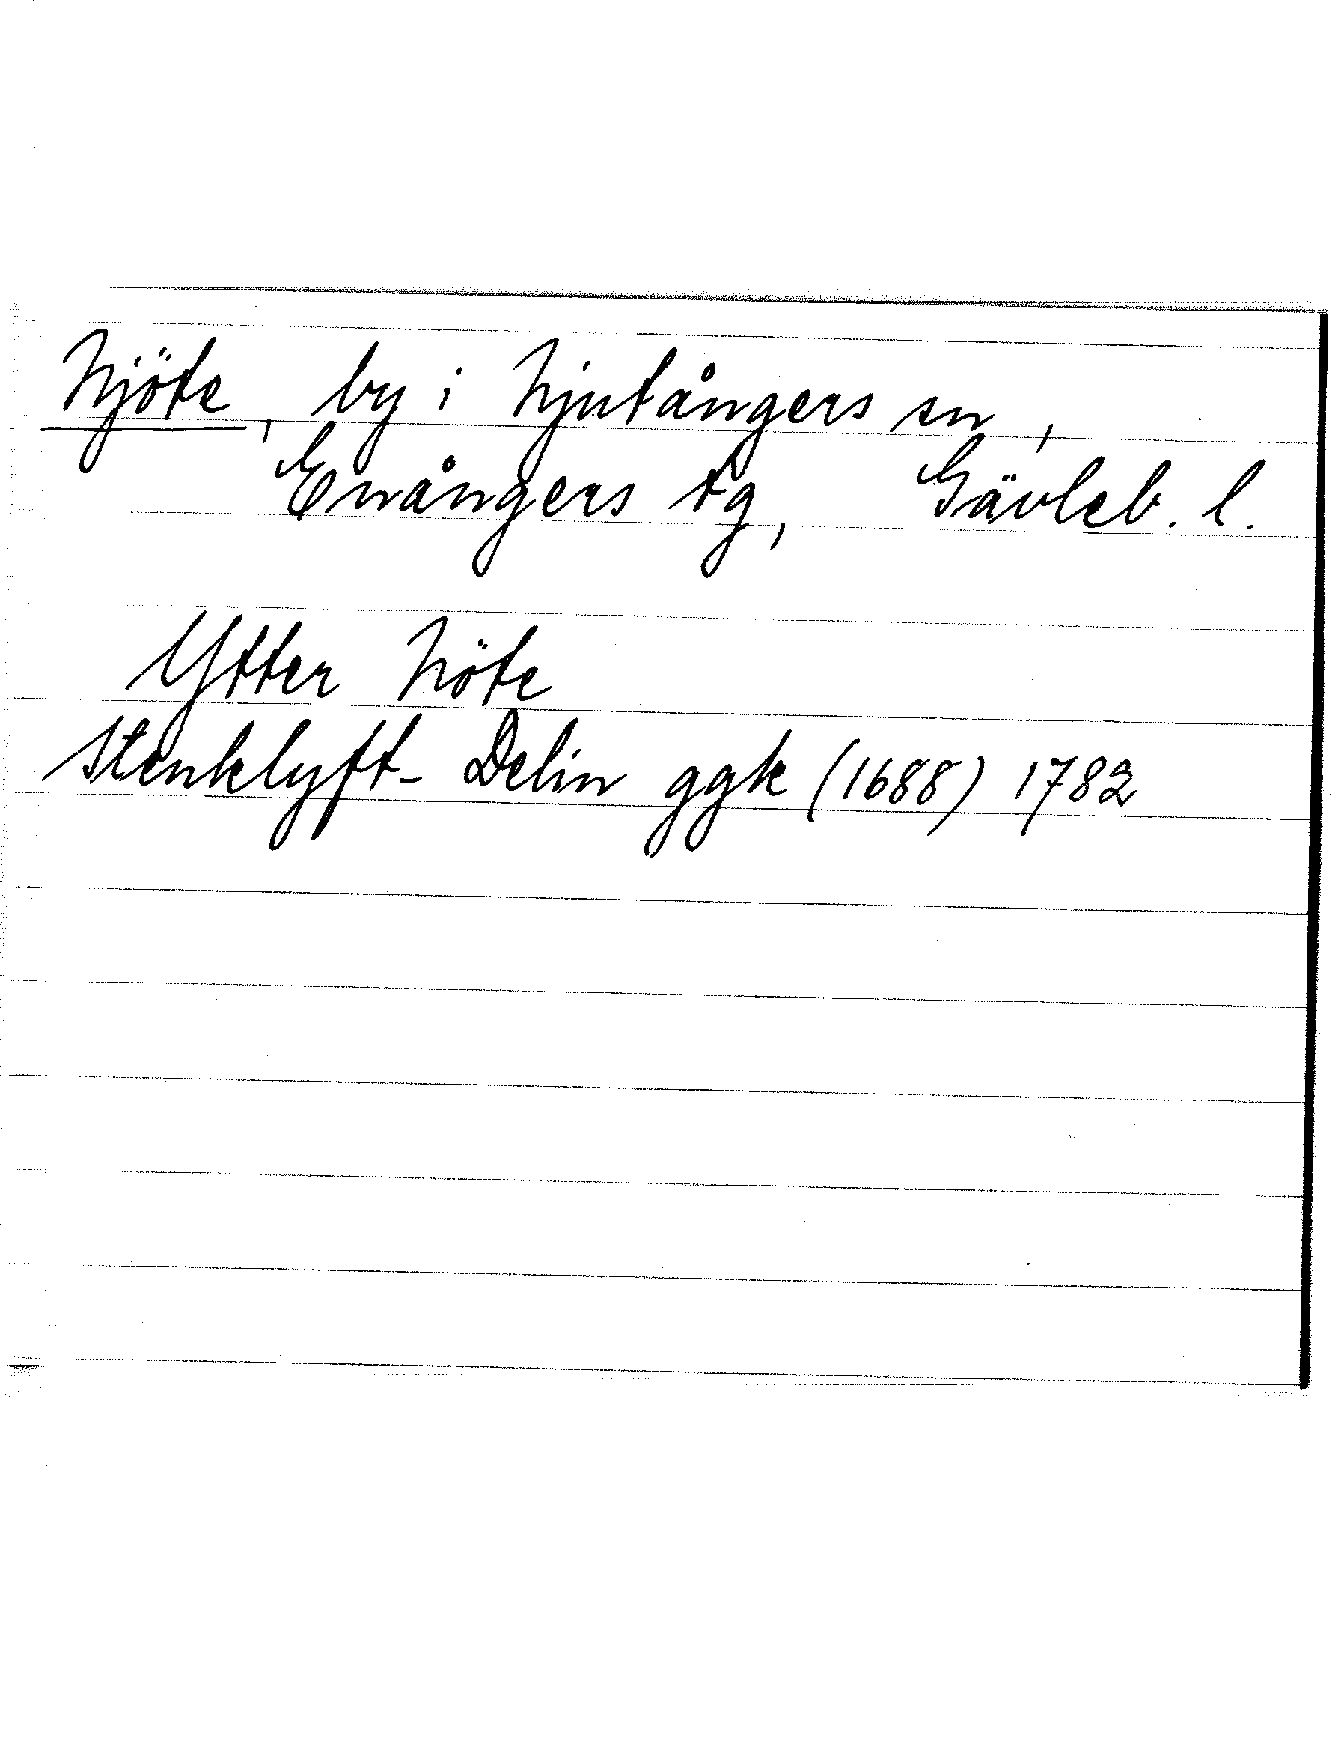 Njöte, by i Njutångers sn,
Enångers tg, Gävleb. l.
Ytter Nöte
Stenklyft- Delin ggk (1688) 1782